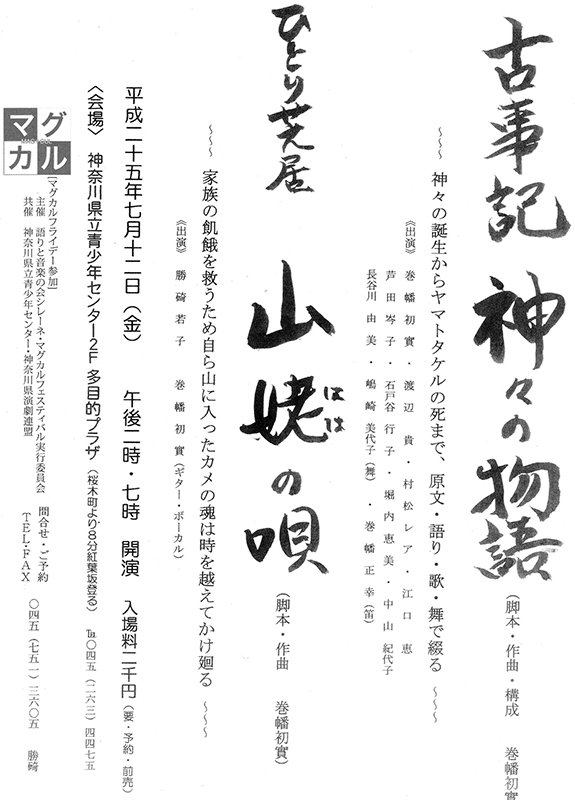 古事記 神々の物語 (脚本・作曲・構成 巻幡初實
～～～ 神々の誕生からヤマトタケルの死まで、原文・語り・歌・舞で綴る ～～～
《出演》 巻幡初實・渡辺 貴・村松レア・江口 恵
芦田岑子・石戸谷 行子・堀内恵美・中山 紀代子
長谷川由美・嶋﨑美代子(舞)・巻幡正幸(笛)
ひとり芝居 山姥の唄 (脚本・作曲 巻幡初實)
はは
～～～ 家族の飢餓を救うため自ら山に入ったカメの魂は時を越えてかけ廻る ～～～
《出演》 勝碕若子 巻幡初實(ギター・ボーカル)
平成二十五年七月十二日(金) 午後二時・七時 開演 入場料二千円(要・予約・前売)
〈会場〉 神奈川県立青少年センター2F 多目的プラザ (桜木町より8分紅葉坂登る) ℡〇四五(二六三)四四七五
マグカル
MAG CUL
[マグカルフライデー参加]
主催 語りと音楽の会シレーネ・マグカルフェスティバル実行委員会 問合せ・ご予約
共催 神奈川県立青少年センター・神奈川県演劇連盟 TEL・FAX 〇四五(七五一)三六〇五 勝碕